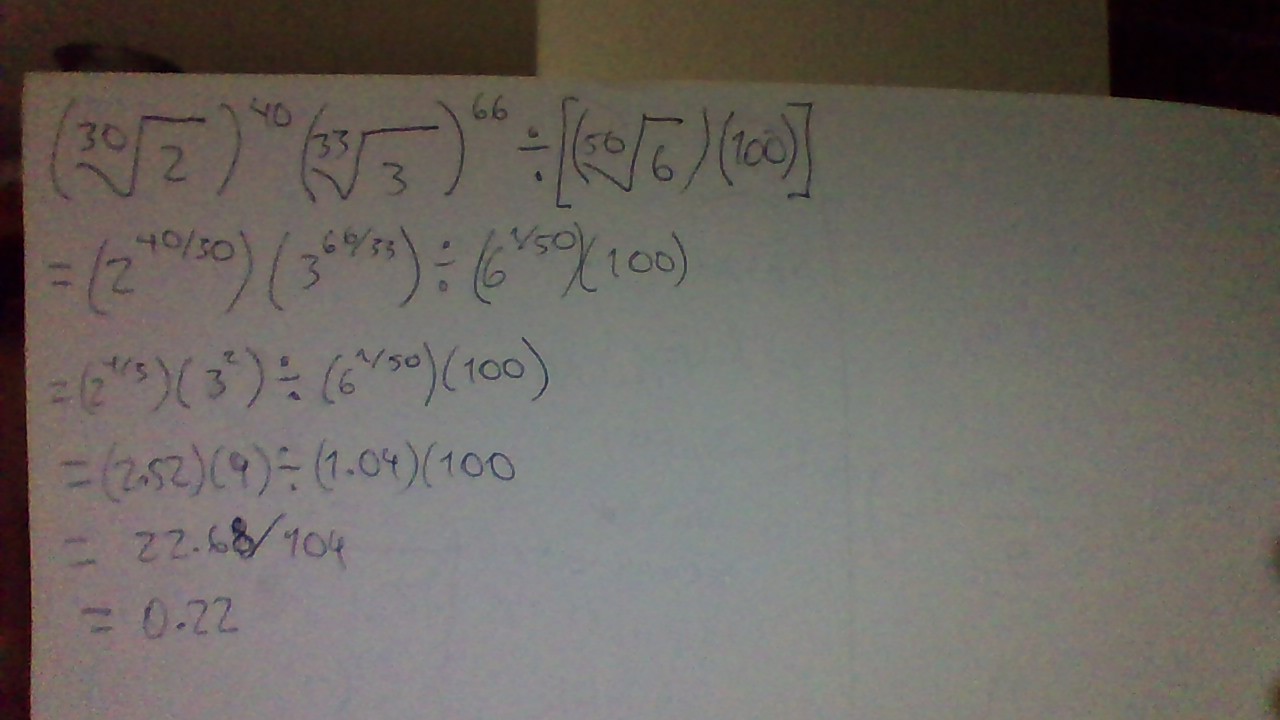 (³⁰√2)⁴⁰(³³√3)⁶⁶ ÷ [(⁵⁰√6)(100)]
= (2^40/30)(3^66/33) ÷ (6^1/50)(100)
= (2^4/3)(3²) ÷ (6^1/50)(100)
= (2.52)(9) ÷ (1.04)(100
= 22.68/104
= 0.22